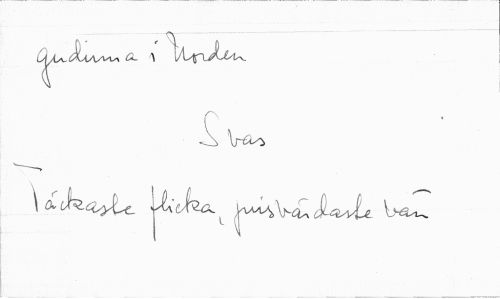 gudinna i Norden
Svas
Täckaste flicka, prisvärdaste vän